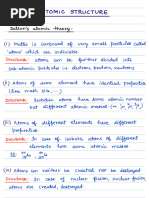 ATOMIC STRUCTURE
Dalton's atomic theory:-
(I) Matter is composed of very small particles called
atoms which are indivisible.
Drawback: atoms can be further divided into
sub-atomic particles i.e. electron, proton, neutrons
Atoms of same element have identical properties
Drawback: Isotopic atoms have same atomic number
but different atomic masses
Atoms of different elements have different
properties.
Drawback: In case of isobars atoms of
different elements have same atomic mass
(iv) Atoms can neither be created nor be destroyed
Drawback: In case of nuclear fission, nuclear fusion
atoms are created, destroyed